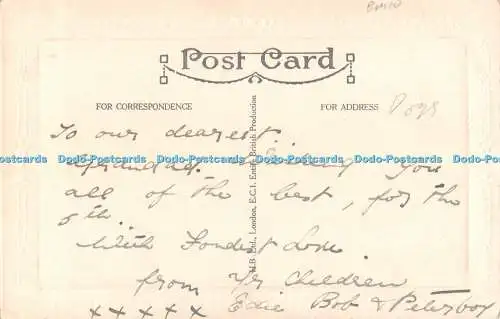 Post Card
FOR CORRESPONDENCE
FOR ADDRESS
Dogs
To our dearest
Grandad. Wishing you
all of the best, for the
5th.
With Fondest Love
from Yr Children
Edie Bob & Peterboy
x x x x x
H.B. Ltd., London, E.C.1. Entirely British Production
Dodo-Postcards Dodo-Postcards Dodo-Postcards Dodo-Postcards
Dodo-Postcards Dodo-Postcards Dodo-Postcards